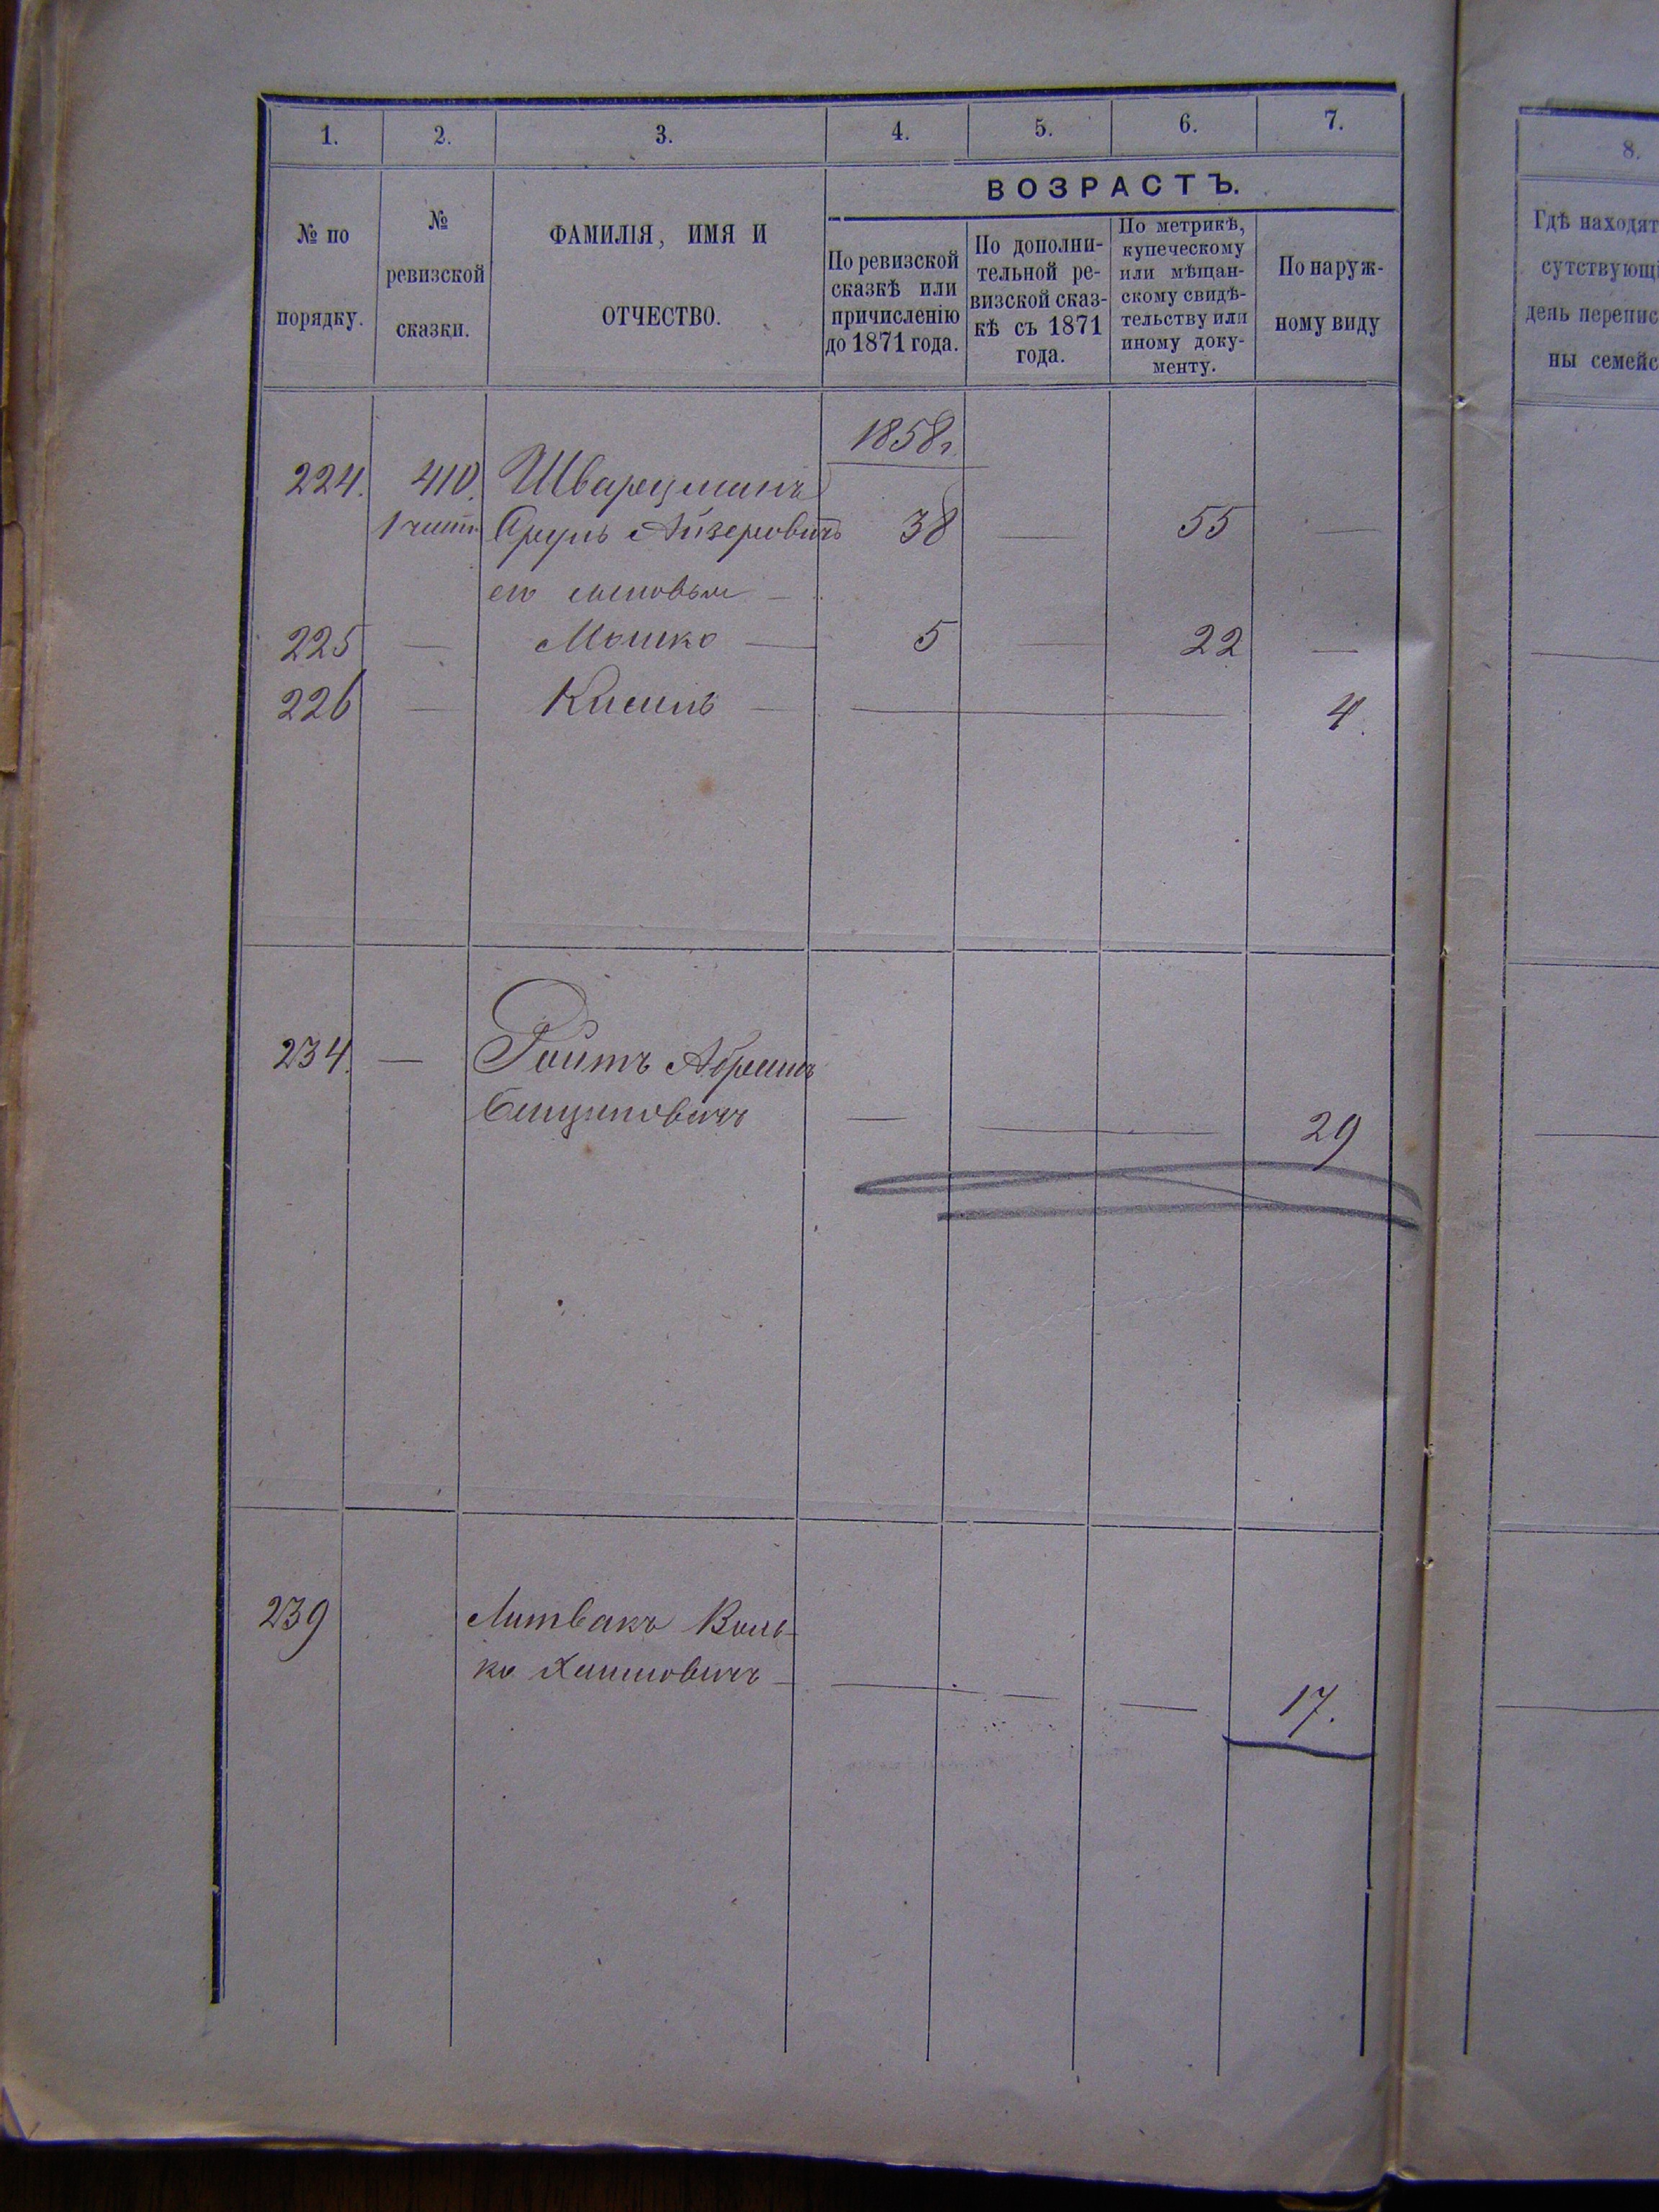 1. 2. 3. 4. 5. 6. 7.
№ по порядку.
№ ревизской сказки.
ФАМИЛІЯ, ИМЯ И ОТЧЕСТВО.
ВОЗРАСТЪ.
По ревизской
сказкѣ или
причисленію
до 1871 года.
По дополни-
тельной ре-
визской сказ-
кѣ съ 1871
года.
По метрикѣ,
купеческому
или мѣщан-
скому свидѣ-
тельству или
иному доку-
менту.
По наруж-
ному виду
1858г.
224. 410. Шварцманъ
Срулъ Айзеровичъ 38 — 55 —
его сыновья —
225 — Мошко — 5 — 22 —
226 — Кисиль — — 4.
234. — Ройтъ Абрамъ
Бенционовичъ — — 29
239 Литвакъ Воль-
ко Хаимовичъ — — — — 17.
8.
Гдѣ находят
сутствующі
день перепис
ны семейс